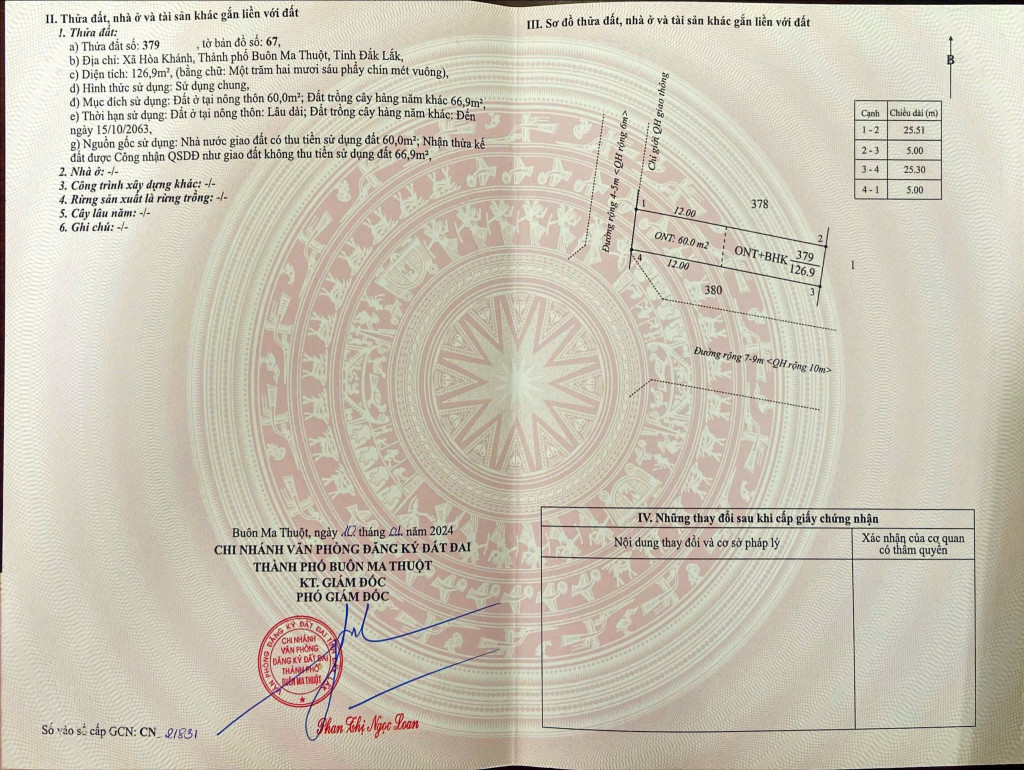 II. Thửa đất, nhà ở và tài sản khác gắn liền với đất
1. Thửa đất:
a) Thửa đất số: 379 , tờ bản đồ số: 67,
b) Địa chỉ: Xã Hòa Khánh, Thành phố Buôn Ma Thuột, Tỉnh Đắk Lắk,
c) Diện tích: 126,9m², (bằng chữ: Một trăm hai mươi sáu phẩy chín mét vuông),
d) Hình thức sử dụng: Sử dụng chung,
đ) Mục đích sử dụng: Đất ở tại nông thôn 60,0m²; Đất trồng cây hàng năm khác 66,9m²,
e) Thời hạn sử dụng: Đất ở tại nông thôn: Lâu dài; Đất trồng cây hàng năm khác: Đến
ngày 15/10/2063,
g) Nguồn gốc sử dụng: Nhà nước giao đất có thu tiền sử dụng đất 60,0m²; Nhận thừa kế
đất được Công nhận QSDĐ như giao đất không thu tiền sử dụng đất 66,9m²,
2. Nhà ở: -/-
3. Công trình xây dựng khác: -/-
4. Rừng sản xuất là rừng trồng: -/-
5. Cây lâu năm: -/-
6. Ghi chú: -/-
Buôn Ma Thuột, ngày 10 tháng 01 năm 2024
CHI NHÁNH VĂN PHÒNG ĐĂNG KÝ ĐẤT ĐAI
THÀNH PHỐ BUÔN MA THUỘT
KT. GIÁM ĐỐC
PHÓ GIÁM ĐỐC
VĂN PHÒNG ĐĂNG KÝ ĐẤT ĐAI TỈNH ĐẮK LẮK
CHI NHÁNH
VĂN PHÒNG
ĐĂNG KÝ ĐẤT ĐAI
THÀNH PHỐ
BUÔN MA THUỘT
Phan Thị Ngọc Loan
Số vào sổ cấp GCN: CN_21831
III. Sơ đồ thửa đất, nhà ở và tài sản khác gắn liền với đất
B
Cạnh Chiều dài (m)
1 - 2 25.51
2 - 3 5.00
3 - 4 25.30
4 - 1 5.00
Đường rộng 4-5m <QH rộng 6m>
Chỉ giới QH giao thông
378
1
12.00
2
ONT: 60.0 m2
ONT+BHK 379
126.9
1
4
12.00
3
380
Đường rộng 7-9m <QH rộng 10m>
IV. Những thay đổi sau khi cấp giấy chứng nhận
Nội dung thay đổi và cơ sở pháp lý
Xác nhận của cơ quan
có thẩm quyền